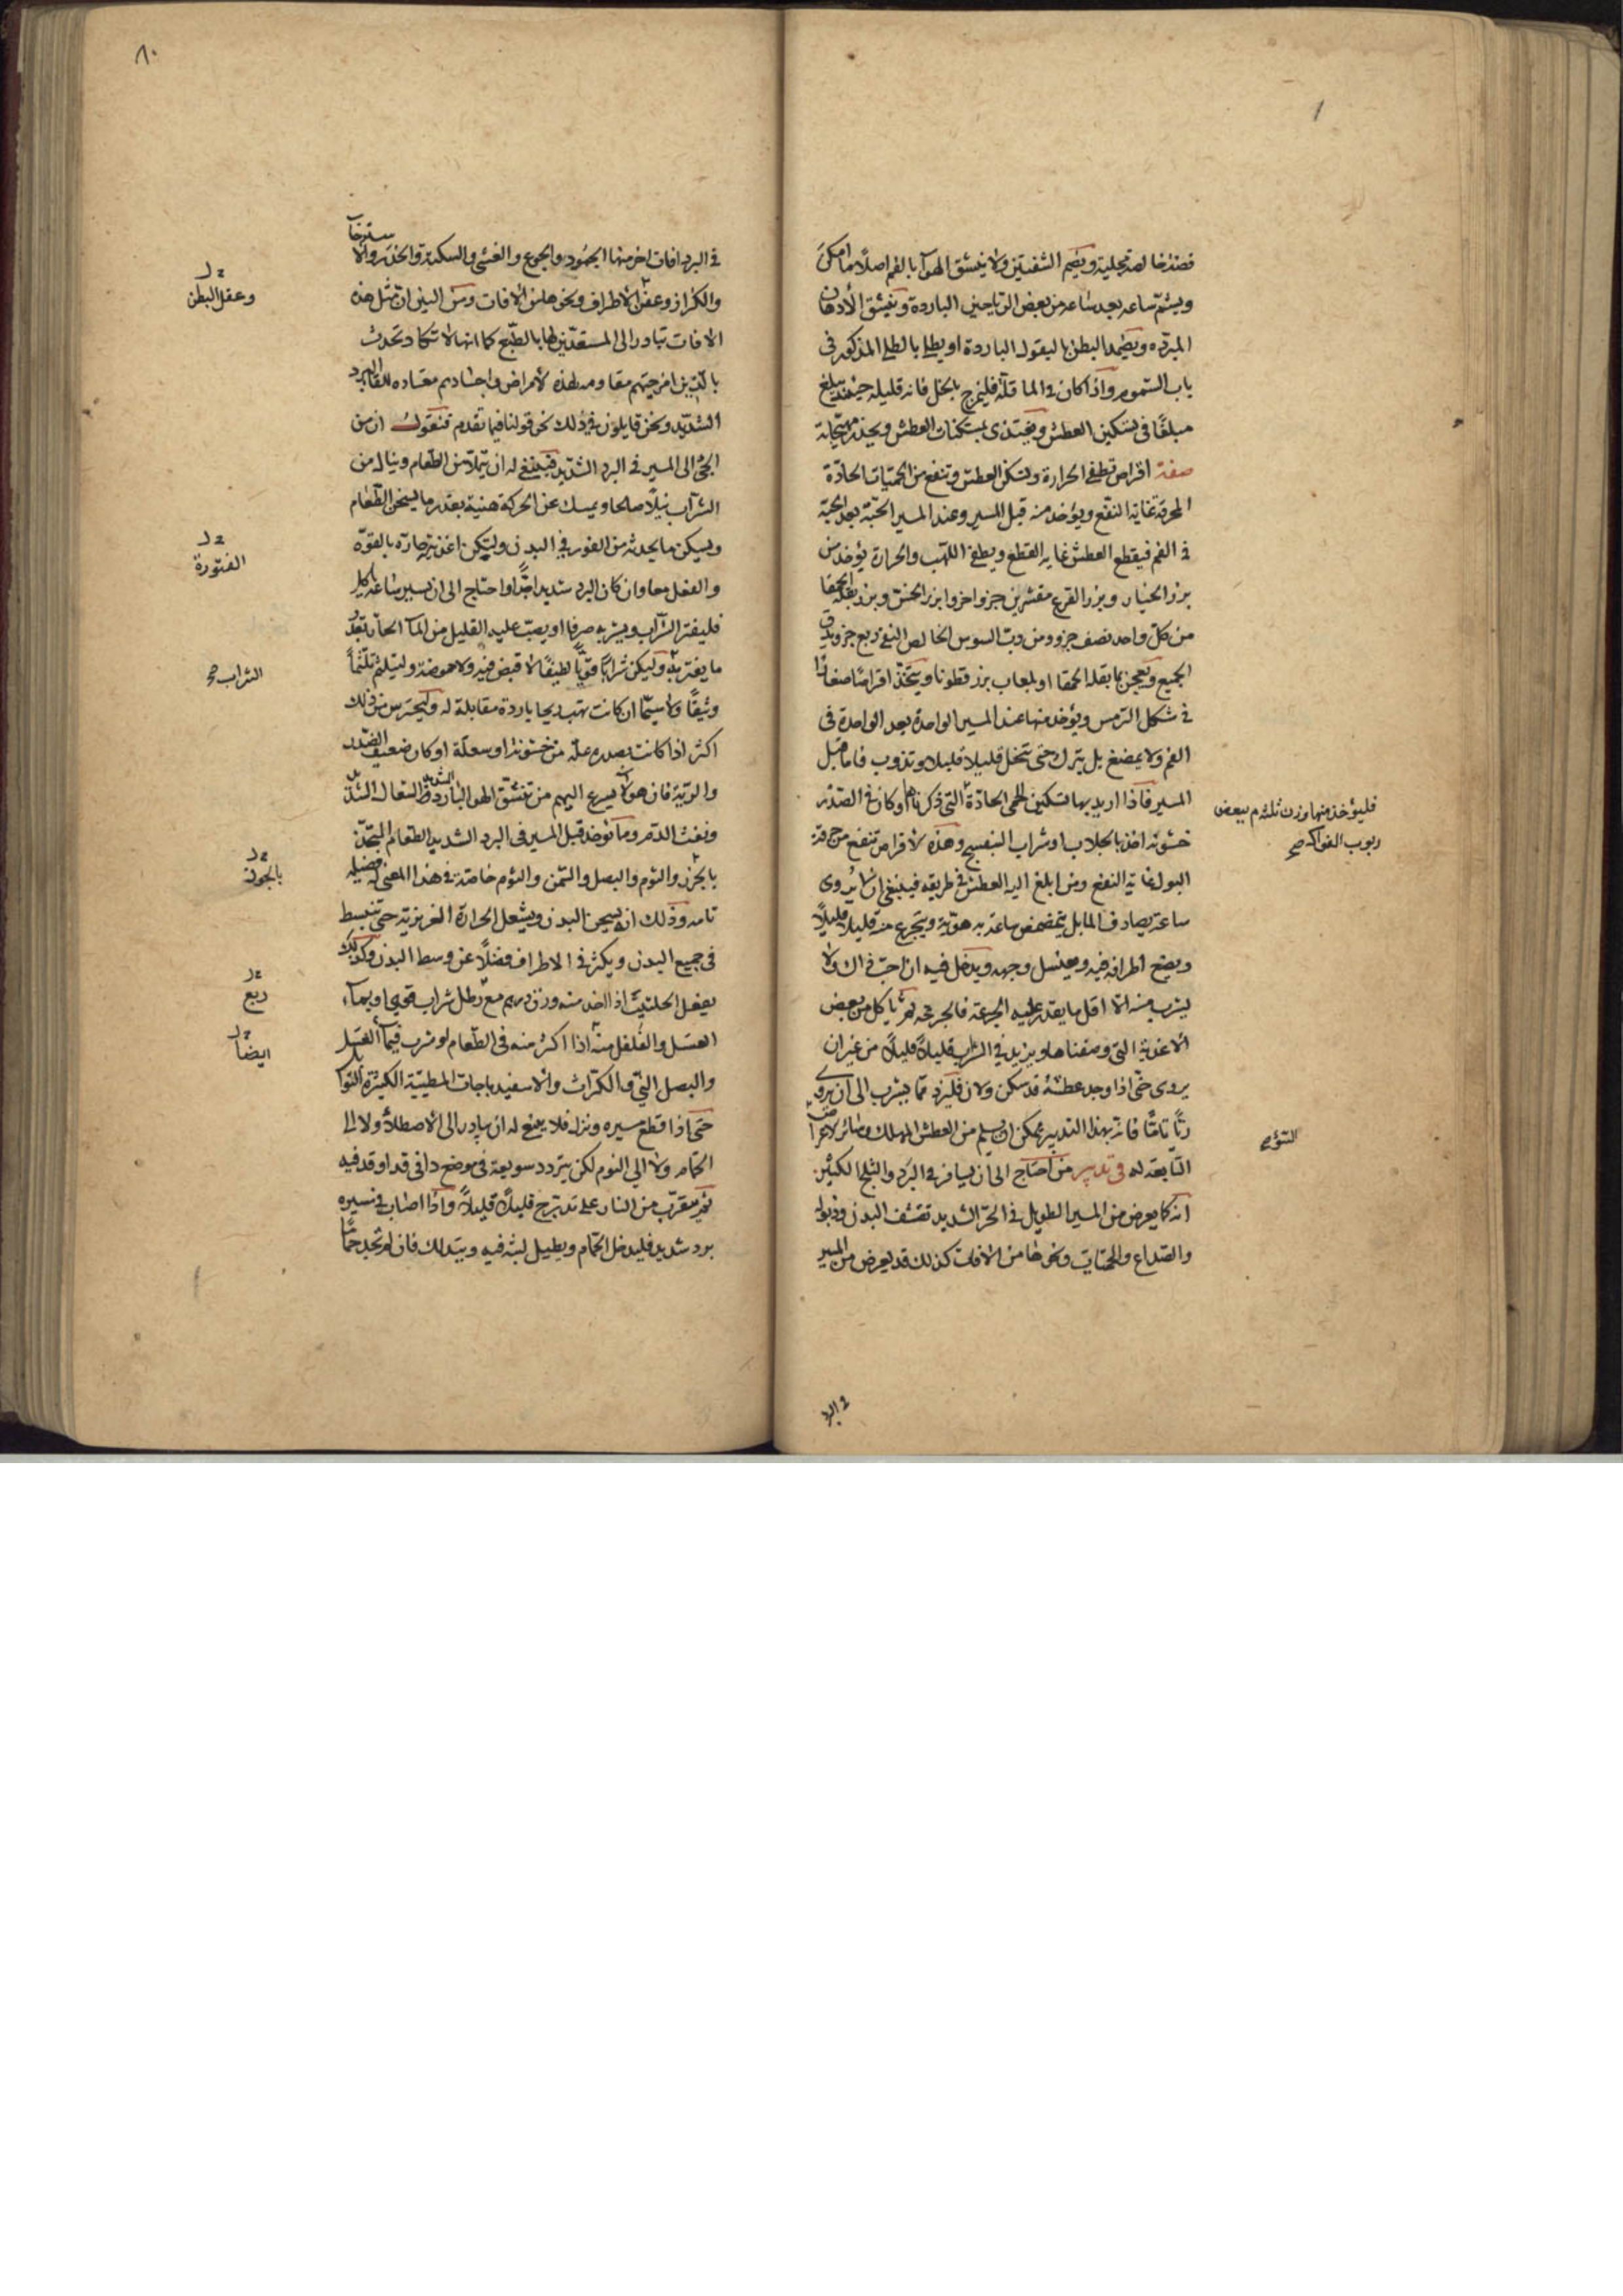 فضة خالصة مجلية ويضم الشفتين ولا ينشق الهوآ بالفم اصلًا ما امكن
ويشم ساعه بعد ساعه من بعض الرياحين الباردة وينشق الأدهان
المبرّده ويضمد البطن بالبقول الباردة او يطلى بالطلى المذكور فى
باب السموم واذا كان فى الما قلّة فليمزج بالخل فانه قليله حينئذ يبلغ
مبلغًا فى تسكين العطش ويغتذى بمسكنات العطش ويحذر مهيّجاته
صفة اقراص تطفى الحرارة وتسكن العطش وتنفع من الحميات الحادّة
المحرقة غاية النفع ويؤخذ منه قبل المسير وعند المسير الحبّة بعد الحبّة
فى الفم فيقطع العطش غاية القطع ويطفى اللهب والحرارة يؤخذ من
بزر الخيار وبزر القرع مقشرين جزو اخر وابزر الخس وبزر بقلة الحمقا
من كلّ واحد نصف جزو ومن ربّ السوس الخالص النقى ربع جزو يدق
الجميع ويعجن بما بقلة الحمقا او بلعاب بزر قطونا ويتخذ اقراصًا صغارًا
فى شكل الترمس ويؤخذ منها عند المسير الواحدة بعد الواحدة فى
الفم ولا يمضغ بل يترك حتى تنحل قليلا قليلا وتذوب فاما قبل
المسير فاذا اريد بها تسكين الحمى الحادّة التى ذكرناها وكان فى الصدر
فليؤخذ منها وزن ثلثه م ببعض
ربوب الفواكه صح
خشونة اخذ بالجلاب او شراب البنفسج وهذه الاقراص تنفع من حرقة
البول غاية النفع ومن ابلغ اليه العطش فى طريقه فينبغى ان لا يروى
ساعة يصادف الما بل يتمضمض ساعة به هوية ويتجرع منه قليلا قليلًا
ويضع اطرافه فيه ويغسل وجهه ويدخل فيه ان احبّ ذاك ولا
يشرب منه الا اقل ما يقدر عليه الجرعة فالجرعة ثم ياكل من بعض
الاغذية التى وصفناها ويزيد فى الشراب قليلاً قليلاً من غير ان
يروى حتى اذا وجد عطشه قد سكن ولان فليزد ممّا يشرب الى ان يروى
ريًّا تامًّا فانه بهذا التدبير يمكن ان يسلم من العطش المهلك وسائر الاعراض
التابعة له فى تدبير من احتاج الى ان يسافر فى البرد والثلج الكثير
انه كما يعرض من المسير الطويل فى الحرّ الشديد تقشف البدن وذبوله
والصداع والحميات ونحوها من الافات كذلك قد يعرض من المسير
فى البرد
٨٠
فى البرد افات اخر منها الجمود والجوع والغشى والسكتة والخدر والاسترخاء
وعقل البطن
والكزاز وعفن الاطراف ونحوها من الافات ومن البيّن ان مثل هذه
الافات تبادر الى المستعدّين لها بالطبع كما انها لا تكاد تحدث
بالذين امزجتهم مقاومه لهذه الامراض واجسادهم معتاده للقا البرد
الشديد ونحن قايلون فى ذلك نحو قولنا فيما تقدم فنقول ان من
الجئ الى المسير فى البرد الشديد فينبغى له ان يتملّا من الطعام وينال من
الشراب نيلًا صالحا ويمسك عن الحركة هنية بقدر ما يسخن الطعام
ويسكن ما يحدثه من الفور فى البدن وليكن اغذيته حارّه بالقوّه
والفعل معا وان كان البرد شديد اجدًّا واحتاج الى ان يسير ساعة ياكل
فليفتر الشراب ويشربه صرفا او يصبّ عليه القليل من المآ الحار بقدر
ما يفتر به وليكن شرابًا قويًّا لطيفًا لا قبض فيه ولا حموضة وليتلثم تلثّمًا
الشراب صح
وثيقًا ولا سيّما ان كانت تهب ريحا باردة مقابلة له وليحترس من ذلك
اكثر اذا كانت بصدره علّة من خشونة او سعلة او كان ضعيف الصدر
والرية فان هولا يسرع اليهم من تنشق الهوا البارد الشديد السعال الشديد
ونفث الدم ومما يؤخذ قبل المسير فى البرد الشديد الطعام المتخذ
بالجوز والثوم والبصل والسمن والثوم خاصّة فى هذا المعنى له فضيلة
تامه وذلك انه يسخن البدن ويشعل الحرارة الغريزية حتى تنبسط
فى جميع البدن ويكثر فى الاطراف فضلًا عن وسط البدن وكذلك
يفعل الحلتيت اذا اخذ منه وزن درهم مع رطل شراب قوى او بماء
ربع
العسل والفلفل منه اذا اكثر منه فى الطعام او شرب فى مآ العسل
ايضًا
والبصل النىّ والكرّاث والاسفيدباجات المطيّبة الكثيرة التوابل
حتى اذا قطع سيره ونزل فلا يصلح له ان يبادر الى الاصطلا ولا الى
الحمّام ولا الى النوم لكن يتردد سويعة فى موضع دافى قد اوقد فيه
ثم يتقرّب من النار على تدريج قليلاً قليلاً واذا اصابه فى مسيره
برد شديد فليدخل الحمّام ويطيل لبثه فيه ويتدلك فان لم تجد حمّامًا